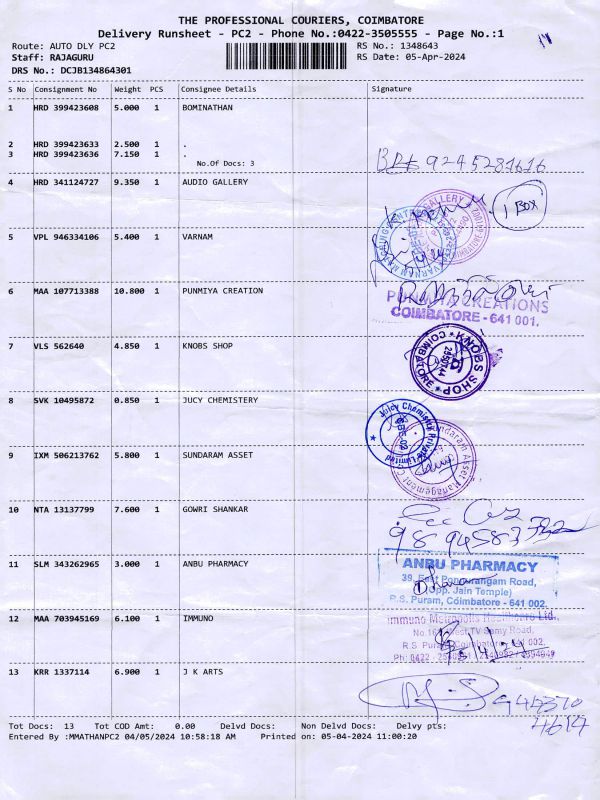 THE PROFESSIONAL COURIERS, COIMBATORE
Delivery Runsheet - PC2 - Phone No.:0422-3505555 - Page No.:1
Route: AUTO DLY PC2 RS No.: 1348643
Staff: RAJAGURU RS Date: 05-Apr-2024
DRS No.: DCJB134864301
S No Consignment No Weight PCS Consignee Details Signature
1 HRD 399423608 5.000 1 BOMINATHAN
2 HRD 399423633 2.500 1 .
3 HRD 399423636 7.150 1 .
No.Of Docs: 3
9245281616
4 HRD 341124727 9.350 1 AUDIO GALLERY
1 BOX
5 VPL 946334106 5.400 1 VARNAM
6 MAA 107713388 10.800 1 PUNMIYA CREATION
PUNMIYA CREATIONS
COIMBATORE - 641 001.
7 VLS 562640 4.850 1 KNOBS SHOP
KNOBS SHOP
COIMBATORE
8 SVK 10495872 0.850 1 JUCY CHEMISTERY
Juicy Chemistry Private Limited
9 IXM 506213762 5.800 1 SUNDARAM ASSET
Sundaram Asset Management
10 NTA 13137799 7.600 1 GOWRI SHANKAR
11 SLM 343262965 3.000 1 ANBU PHARMACY
ANBU PHARMACY
39, East Ponnurangam Road,
(Opp. Jain Temple)
R.S. Puram, Coimbatore - 641 002.
12 MAA 703945169 6.100 1 IMMUNO
Immuno Metropolis Healthcare Ltd.
West TV Samy Road,
R.S. Puram, Coimbatore 002.
13 KRR 1337114 6.900 1 J K ARTS
Tot Docs: 13 Tot COD Amt: 0.00 Delvd Docs: Non Delvd Docs: Delvy pts:
Entered By :MMATHANPC2 04/05/2024 10:58:18 AM Printed on: 05-04-2024 11:00:20